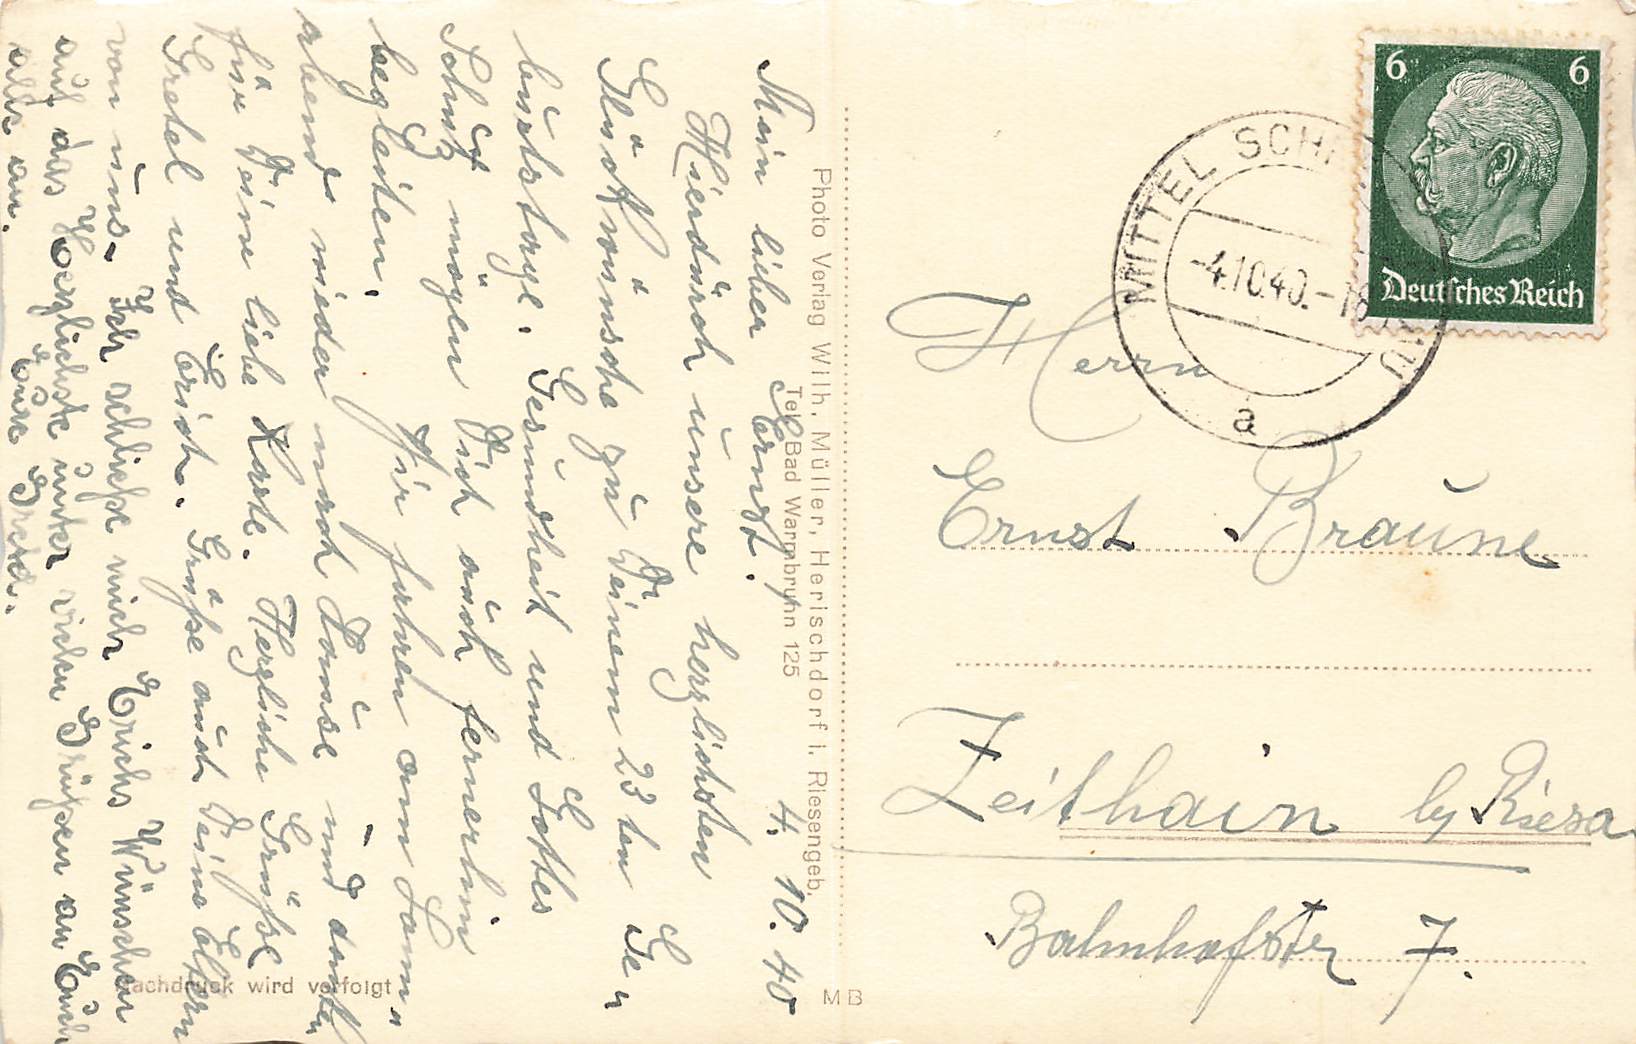 4. 10. 40
Mein lieber Ernst!
Hierdurch unsere herzlichsten
Glückwünsche zu Deinem 23ten Ge=
burtstage. Gesundheit und Gottes
Schutz mögen Dich auch fernerhin
begleiten. Wir fahren am Sonn=
abend wieder nach Hause und danken
für Deine liebe Karte. Herzliche Grüsse
Gretel und Erich. Grüße auch Deine Eltern
von uns. Ich schließe mich Erichs Wünschen
auf das Herzlichste unter vielen Grüßen an Euch
alle an. Eure Gretel.
Photo Verlag Wilh. Müller, Herischdorf i. Riesengeb.
Tel. Bad Warmbrunn 125
Nachdruck wird verfolgt
MB
6 6
Deutsches Reich
MITTEL
-4.10.40.-18
a
Herrn
Ernst Braune
Zeithain by Riesa
Bahnhofstr 7.